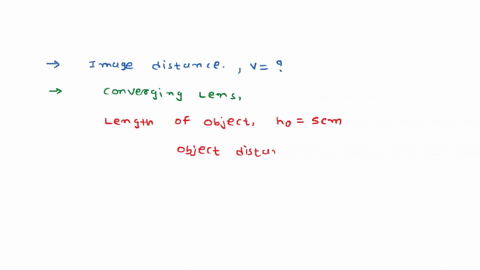 → Image distance. , v = ?
→ converging Lens,
Length of object, ho = 5cm
object dista